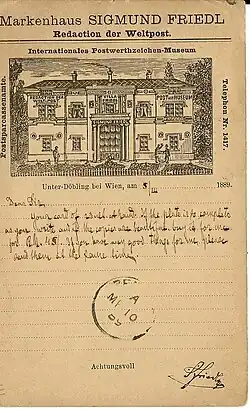 Markenhaus SIGMUND FRIEDL
Redaction der Weltpost.
Internationales Postwerthzeichen-Museum
Postsparcassenamte.
Telephon Nr. 1417.
Unter-Döbling bei Wien, am 5/III 1889.
Dear Sir,
Your card of at hand. If the plate is so complete
as you write and if the copies are beautiful buy it for me
for If you have very good things for me please
send them at the same time.
10
Achtungsvoll
S. Friedl